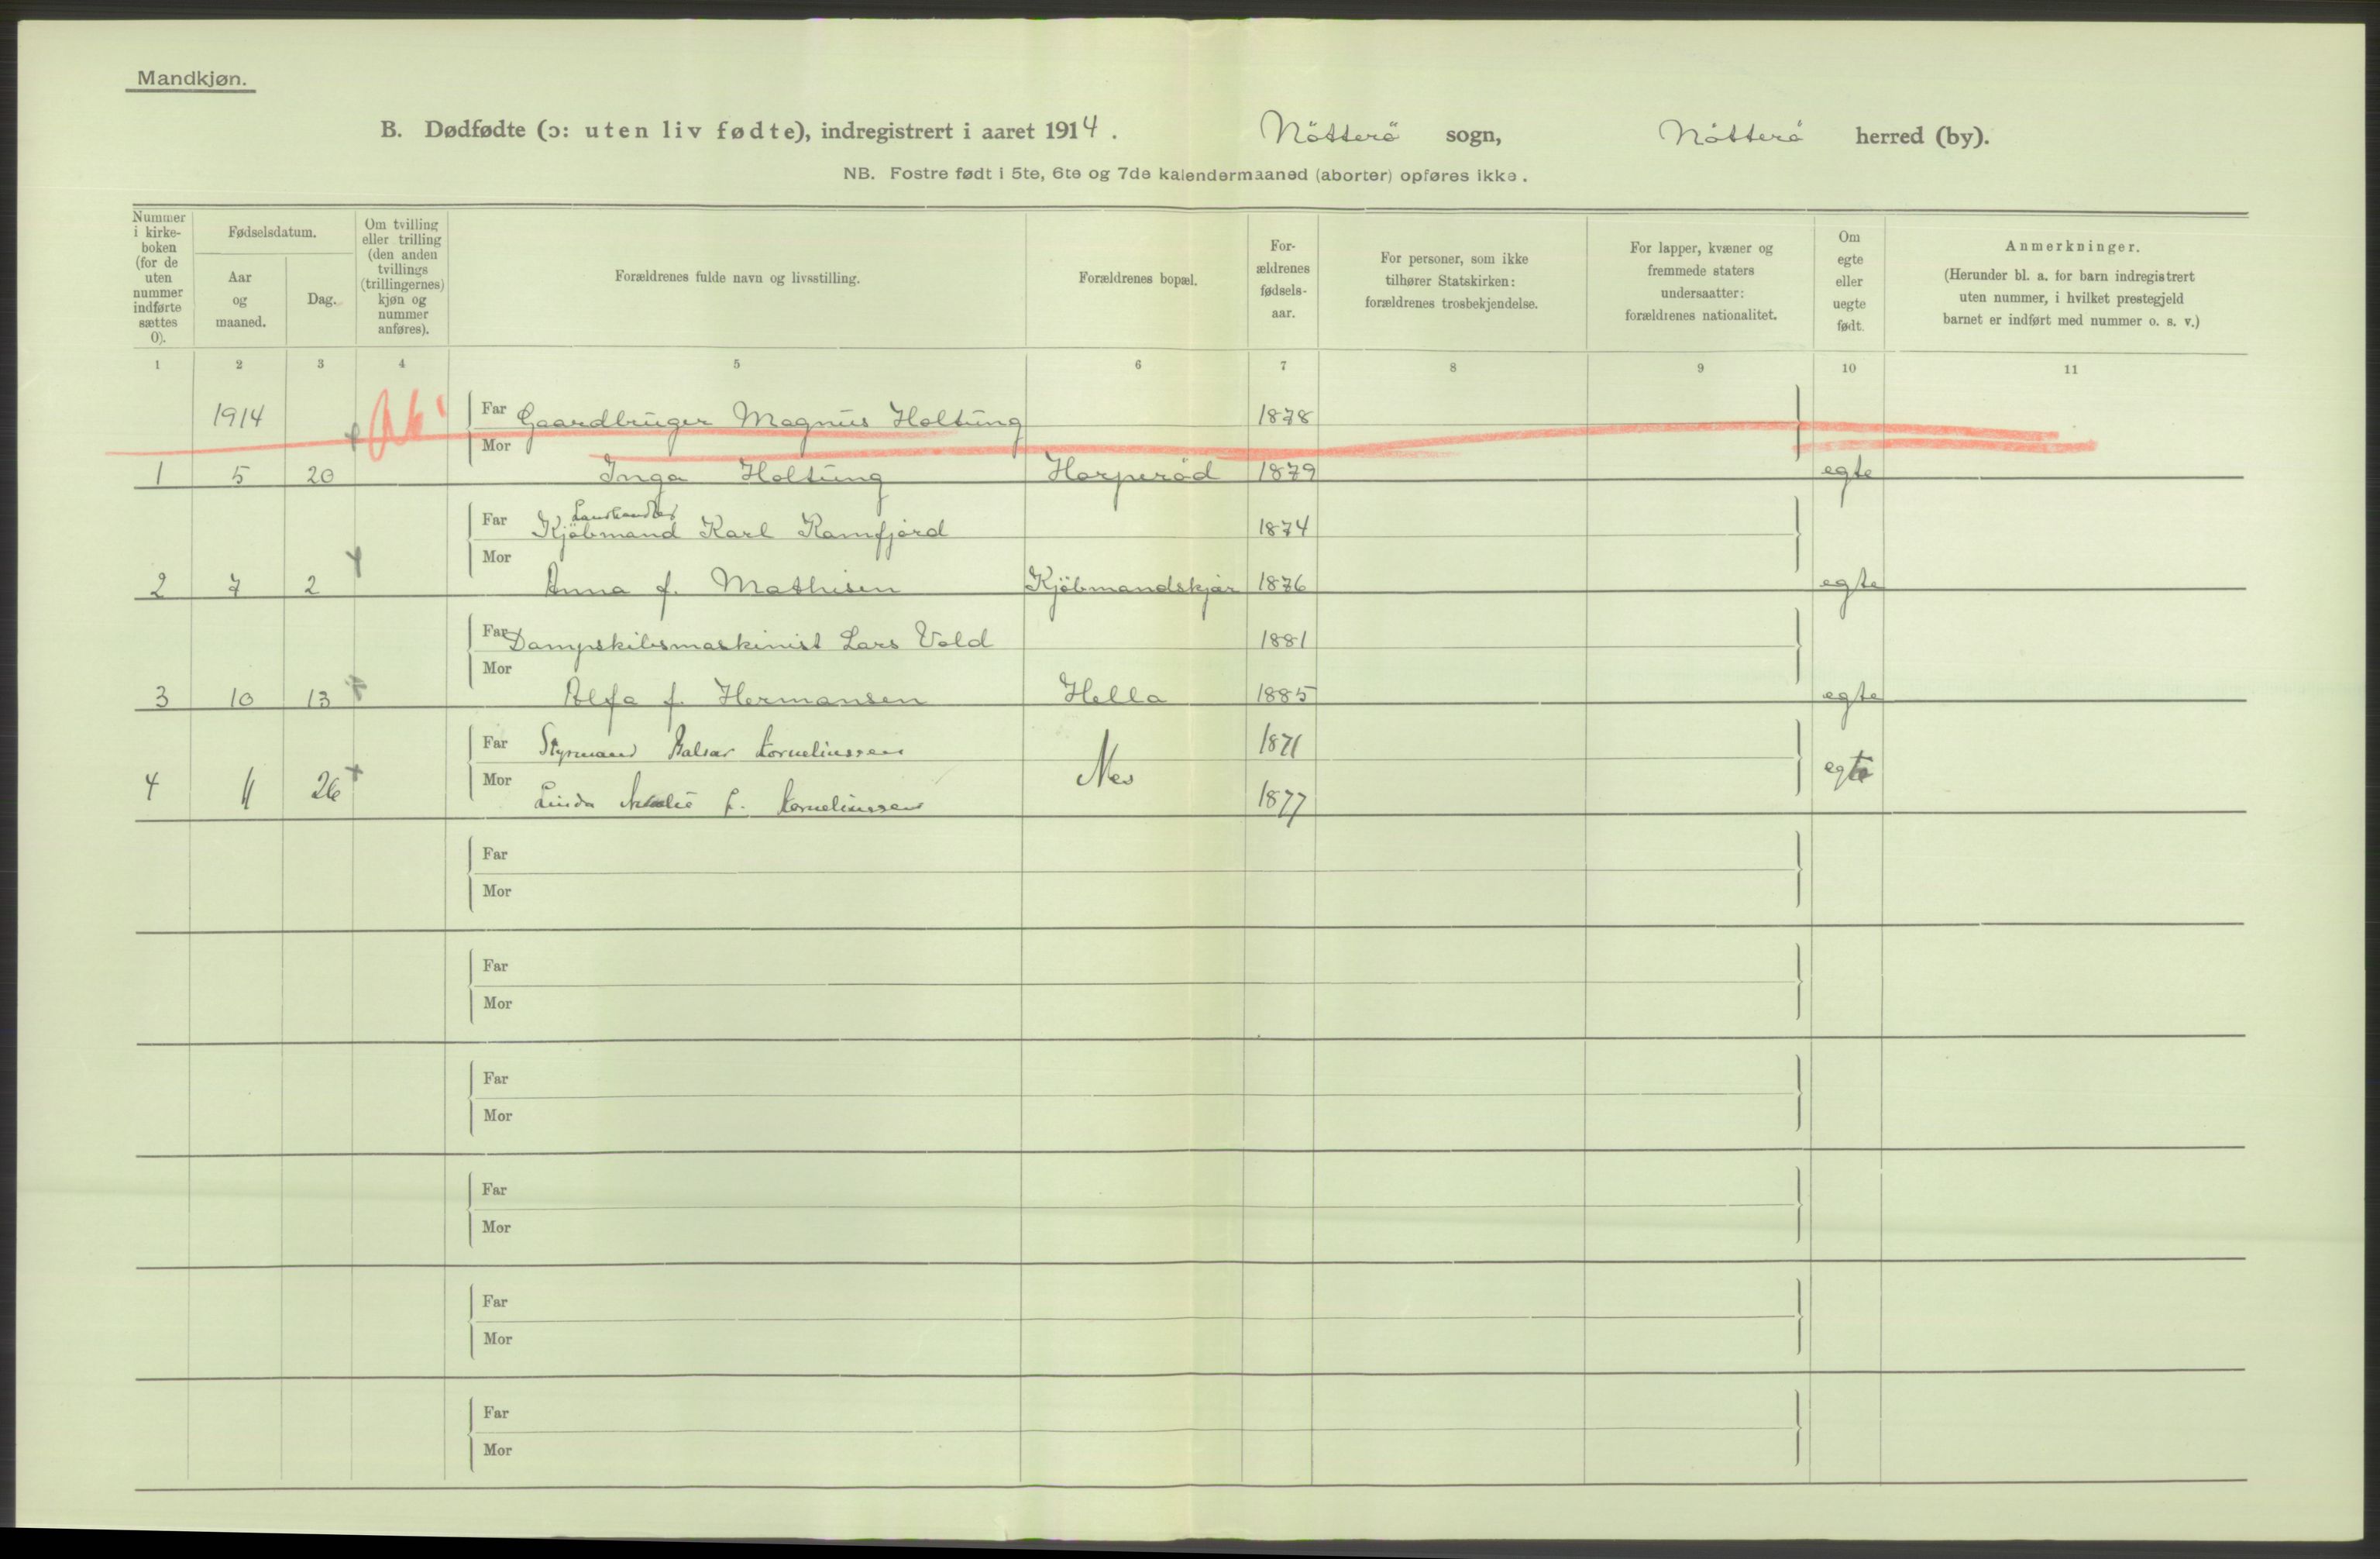 Mandkjøn.
B. Dødfødte (ɔ: uten liv fødte), indregistrert i aaret 1914. Nötterö sogn, Nötterö herred (by).
NB. Fostre født i 5te, 6te og 7de kalendermaaned (aborter) opføres ikke.
Nummer i kirke-boken (for de uten nummer indførte sættes 0).
Fødselsdatum.
Aar og maaned.
Dag.
Om tvilling eller trilling (den anden tvillings (trillingernes) kjøn og nummer anføres).
Forældrenes fulde navn og livsstilling.
Forældrenes bopæl.
For-ældrenes fødsels-aar.
For personer, som ikke tilhører Statskirken: forældrenes trosbekjendelse.
For lapper, kvæner og fremmede staters undersaatter: forældrenes nationalitet.
Om egte eller uegte født.
Anmerkninger.
(Herunder bl. a. for barn indregistrert uten nummer, i hvilket prestegjeld barnet er indført med nummer o. s. v.)
1 2 3 4 5 6 7 8 9 10 11
1914 Far Gaardbruger Magnus Holtung 1878
1 5 20 Mor Inga Holtung Harperöd 1879 egte
Landhandler
Far Kjöbmand Karl Ramfjord 1874
2 7 2 Mor Anna f. Mathisen Kjöbmandskjær 1876 egte
Far Dampskibsmaskinist Lars Vold 1881
3 10 13 Mor Alfa f. Hermansen Hella 1885 egte
Far Styrmand Balsar Korneliussen 1871
4 11 26 Mor Linda f. Korneliussen Nes 1877 egte
Far
Mor
Far
Mor
Far
Mor
Far
Mor
Far
Mor
Far
Mor